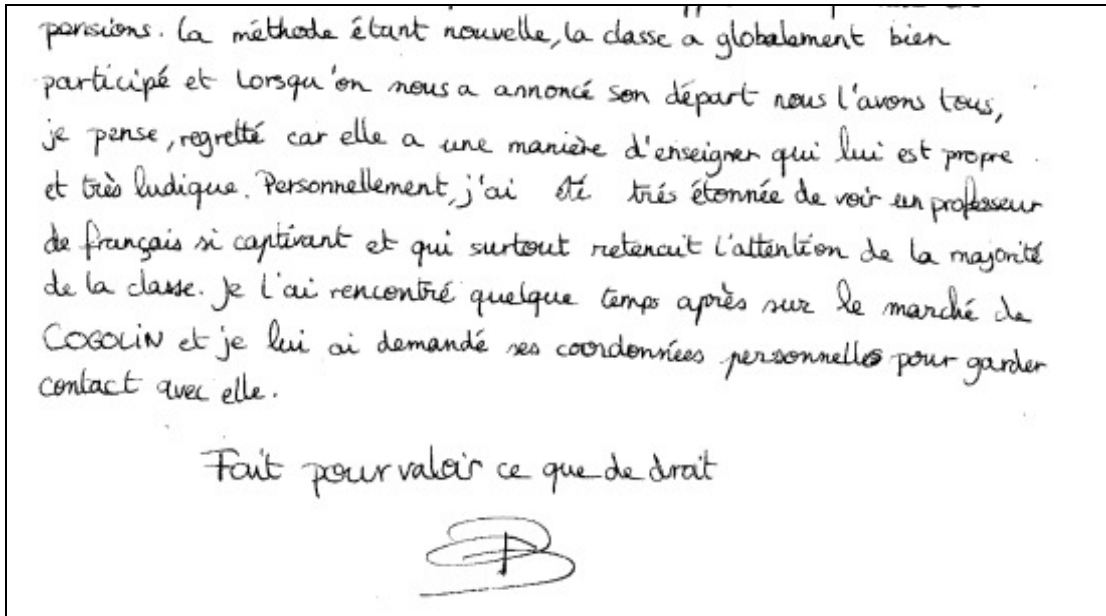 pensions. La méthode étant nouvelle, la classe a globalement bien
participé et lorsqu'on nous a annoncé son départ nous l'avons tous,
je pense, regretté car elle a une manière d'enseigner qui lui est propre
et très ludique. Personnellement, j'ai été trés étonnée de voir un professeur
de français si captivant et qui surtout retenait l'attention de la majorité
de la classe. Je l'ai rencontré quelque temps après sur le marché de
COGOLIN et je lui ai demandé ses coordonnées personnelles pour garder
contact avec elle.
Fait pour valoir ce que de droit